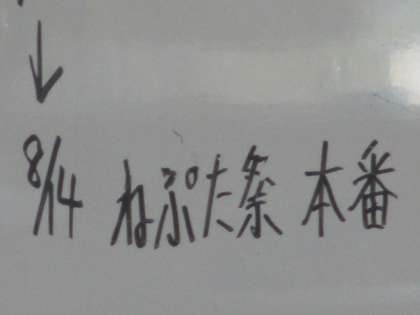 ↓
8/14 ねぷた祭 本番